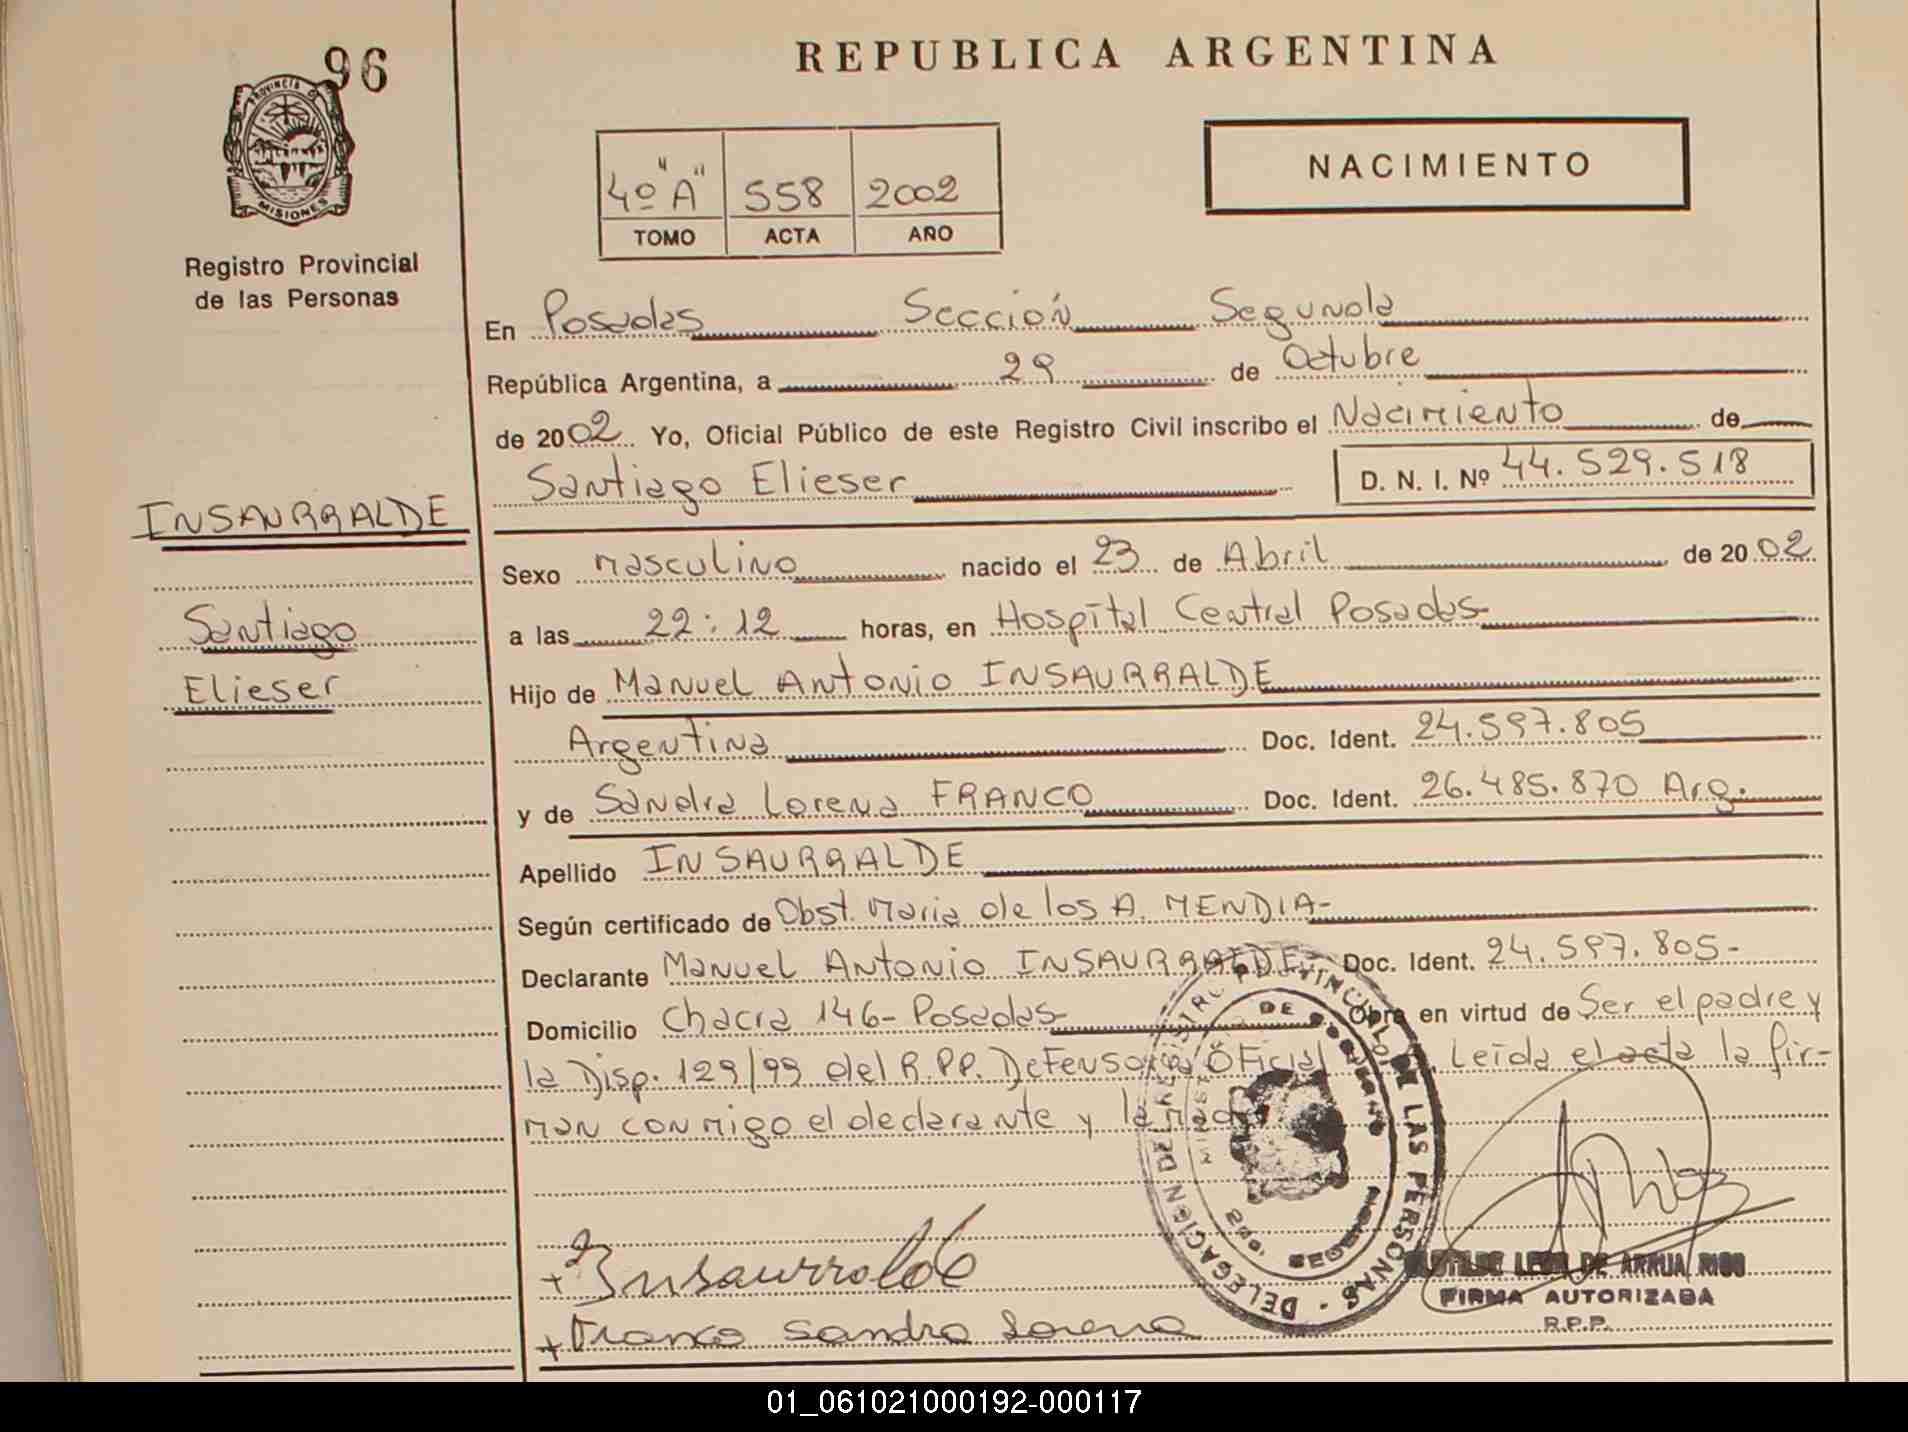 96
REPUBLICA ARGENTINA
PROVINCIA DE
MISIONES
Registro Provincial
de las Personas
4º "A" 558 2002
TOMO ACTA AÑO
NACIMIENTO
En Posadas Sección Segunda
República Argentina, a 29 de Octubre
de 2002 Yo, Oficial Público de este Registro Civil inscribo el Nacimiento de
Santiago Elieser D. N. I. Nº 44.529.518
INSAURRALDE
Santiago
Elieser
Sexo masculino nacido el 23 de Abril de 2002
a las 22:12 horas, en Hospital Central Posadas
Hijo de Manuel Antonio INSAURRALDE
Argentina Doc. Ident. 24.597.805
y de Sandra Lorena FRANCO Doc. Ident. 26.485.870 Arg.
Apellido INSAURRALDE
Según certificado de Obst. Maria de los A. MENDIA-
Declarante Manuel Antonio INSAURRALDE- Doc. Ident. 24.597.805-
Domicilio Chacra 146- Posadas- Obra en virtud de Ser el padre y
la Disp. 129/99 del R.P.P. Defensoria Oficial Leída el acta la fir-
man conmigo el declarante y la madre
DELEGACION DEL REGISTRO PROVINCIAL DE LAS PERSONAS
DE GOBIERNO
POSADAS MISIONES
+ Insaurralde
+ Franco Sandra Lorena
DE ARRUA RIOS
FIRMA AUTORIZADA
R.P.P.
01_061021000192-000117